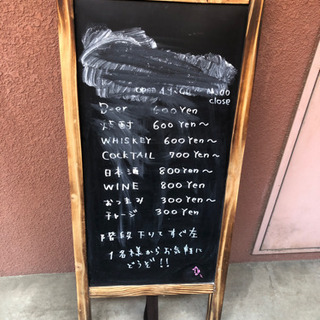 open
close
Beer 600 Yen
焼酎 600 Yen〜
WHISKEY 600 Yen〜
COCKTAIL 700 Yen〜
日本酒 800 Yen〜
WINE 800 Yen
おつまみ 300 Yen〜
チャージ 300 Yen
階段下りてすぐ左
1名様からお気軽に
どうぞ!!